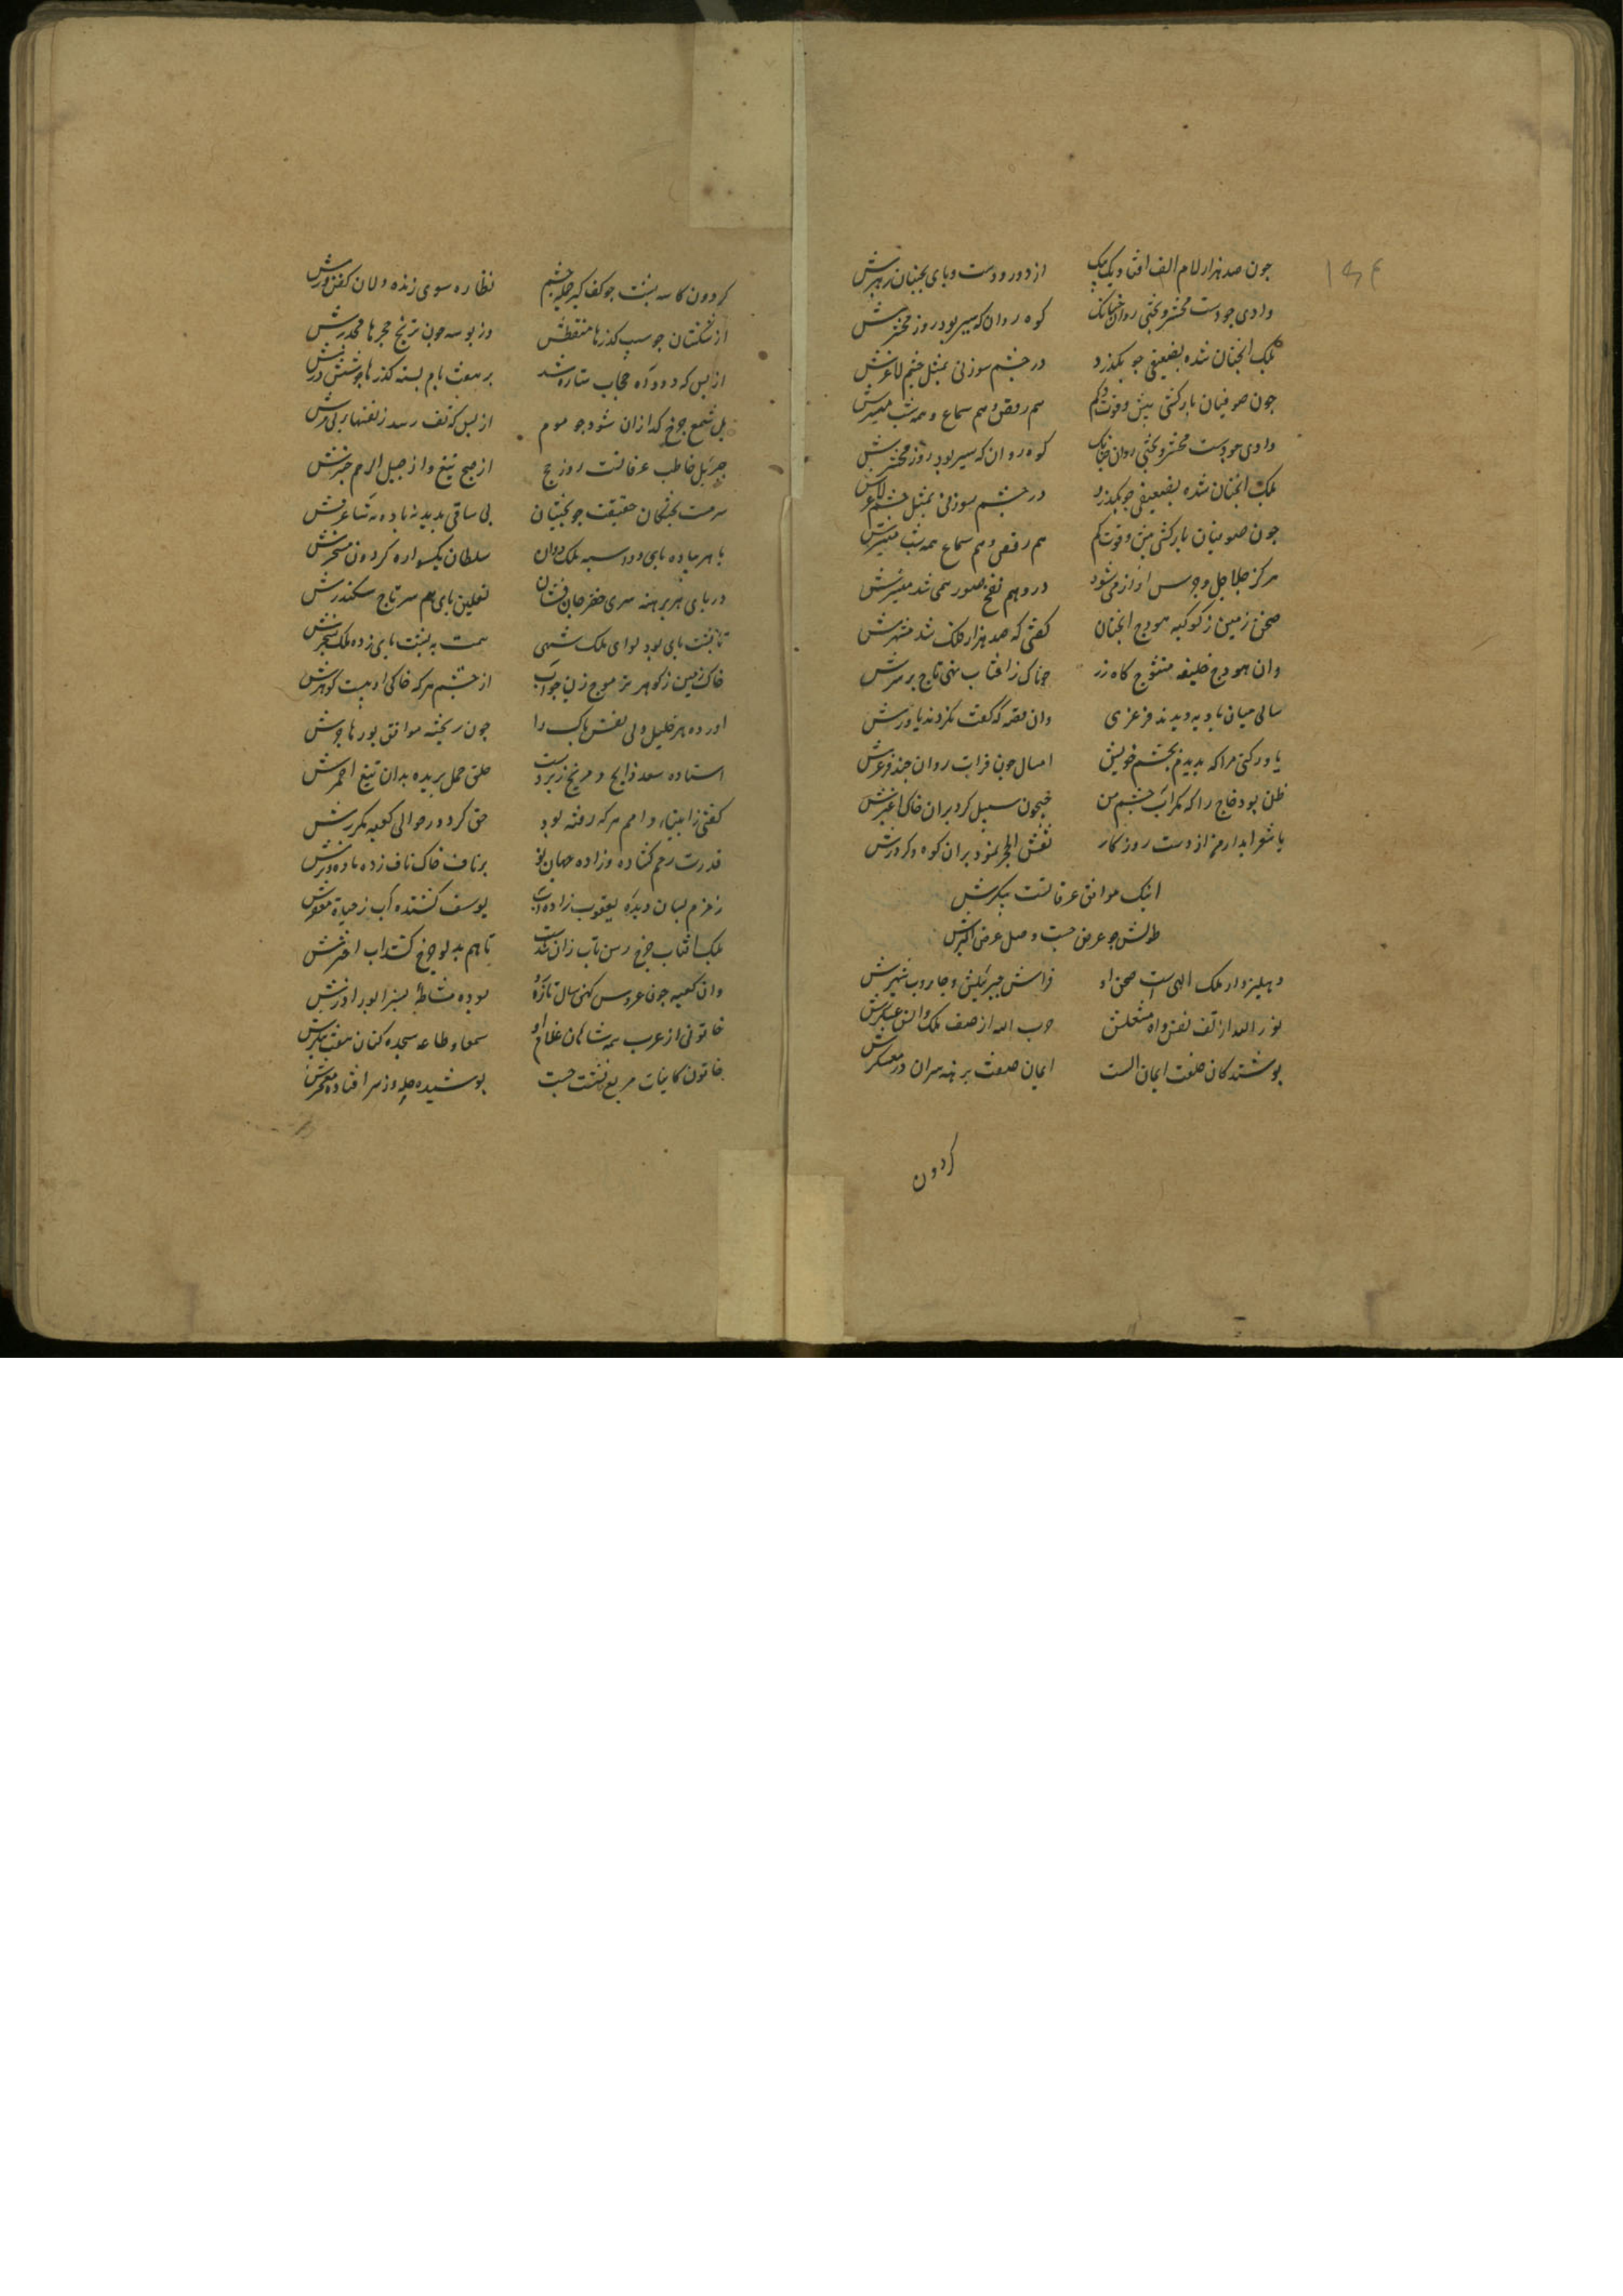 ۱۶۴
چون صد هزار لام الف افتاد یک بیک از دور دست و پای بختیان رهبرش
وادی چو دشت محشر و بختی روان چنانک کوه روان که سیر بود روز محشرش
بلک بختیان شده بضعیفی چو بگذرد در چشم سوزنی بمثل جسم لاغرش
چون صوفیان بارکش بیش وقوت کم هم رقص و هم سماع همه شب میسرش
وادی چو دشت محشر و بختی روان چنانک کوه روان که سیر بود روز محشرش
بلک بختیان شده بضعیفی چو بگذرد در چشم سوزنی بمثل جسم لاغرش
چون صوفیان بارکش بیش وقوت کم هم رقص و هم سماع همه شب میسرش
هر کز جلاجل و جرس آواز می شنود در وهم نفخ صور همی شد مصورش
صحن زمین ز کوکبه هودج انچنان گفتی که صد هزار فلک شد مشهرش
وان هودج خلیفه متوج بماه زر چون کافتاب نهی تاج بر سرش
سالی میان بادیه دیدند فرغری وان قصه که گفت نکردند باورش
باور کنی مرا که بدیدم بچشم خویش امسال چون فرات روان چند فرغرش
ظن بود حاج را که مگر آب چشم من جیحون سبیل کرد بران خاک اغبرش
یا شعر آبدار من از دست روزگار نقش الحجر نمود بران کوه و کردرش
اینک مواقف عرفاتست بنگرش
طولش چو عرض جنت و صد عرض اکبرش
دهلیز دار ملک الهی است صحن او فراش جبرئیلش و جاروب شهپرش
نور الله از تف نفس و آه مشعلش حزب الله از صف ملک و انس عسکرش
پوشندگان خلعت ایمان الست ایمان صفت برهنه سران در معسکرش
گردون
گردون کاسه پشت چو کف گیر جمله چشم نظاره سوی زنده دلان کفن ورش
از شکستان جو سیب گذرها منقطش وز بوسه چون ترنج حجرها مجدرش
از بس که دود آه حجاب ستاره شد بر هفت بام بسته گذرها چو شش درش
بل شمع چرخ گدازان شود چو موم از بس که تف رسد ز نفسهای بی مرش
جبریل خاطب عرفاتست روز حج از صبح تیغ و از جبل الرحم منبرش
سرمست بختگان حقیقت چو بختیان بی ساقی پدید نه باده نه ساغرش
با هر پیاده پای دو اسبه ملک دوان سلطان یکسواره گردون مسخرش
در پای هر برهنه سری خضر جان فشان نعلین پای هم سر تاج سکندرش
تا پشت پای بود لوای ملکشهی همت به پشت پای زده ملک سنجرش
خاک زمین ز گوهر تر موج زن چو آب از چشم هر که خاکی و آبیست گوهرش
آورده هر خلیل ولی نفس پاک را چون ریخته موافق پور هاجرش
استاده سعد ذابح و مریخ زیر دست حلق حمل بریده بدان تیغ احمرش
گفتی ز انبیا و امم هر که رفته بود حق کرد در حوالی کعبه مکررش
قدرت رحم گشاده و زاده جهان نو بر ناف خاک ناف زده ماده و نرش
زمزم بسان دیده یعقوب زاده آب یوسف کشنده آب ز حیات مقعرش
بلک آفتاب چرخ رسن تاب زان شدست تا هم بدلو چرخ کشد آب اخترش
وان کعبه چون عروس کهن سال تازه رو بوده مشاطه بسزا پور آزرش
خاتونی از عرب همه شاهان غلام او سمعا و طاعه سجده کنان هفت کشورش
خاتون کاینات مربع نشست چست پوشیده حله و ز سر افتاده معجرش